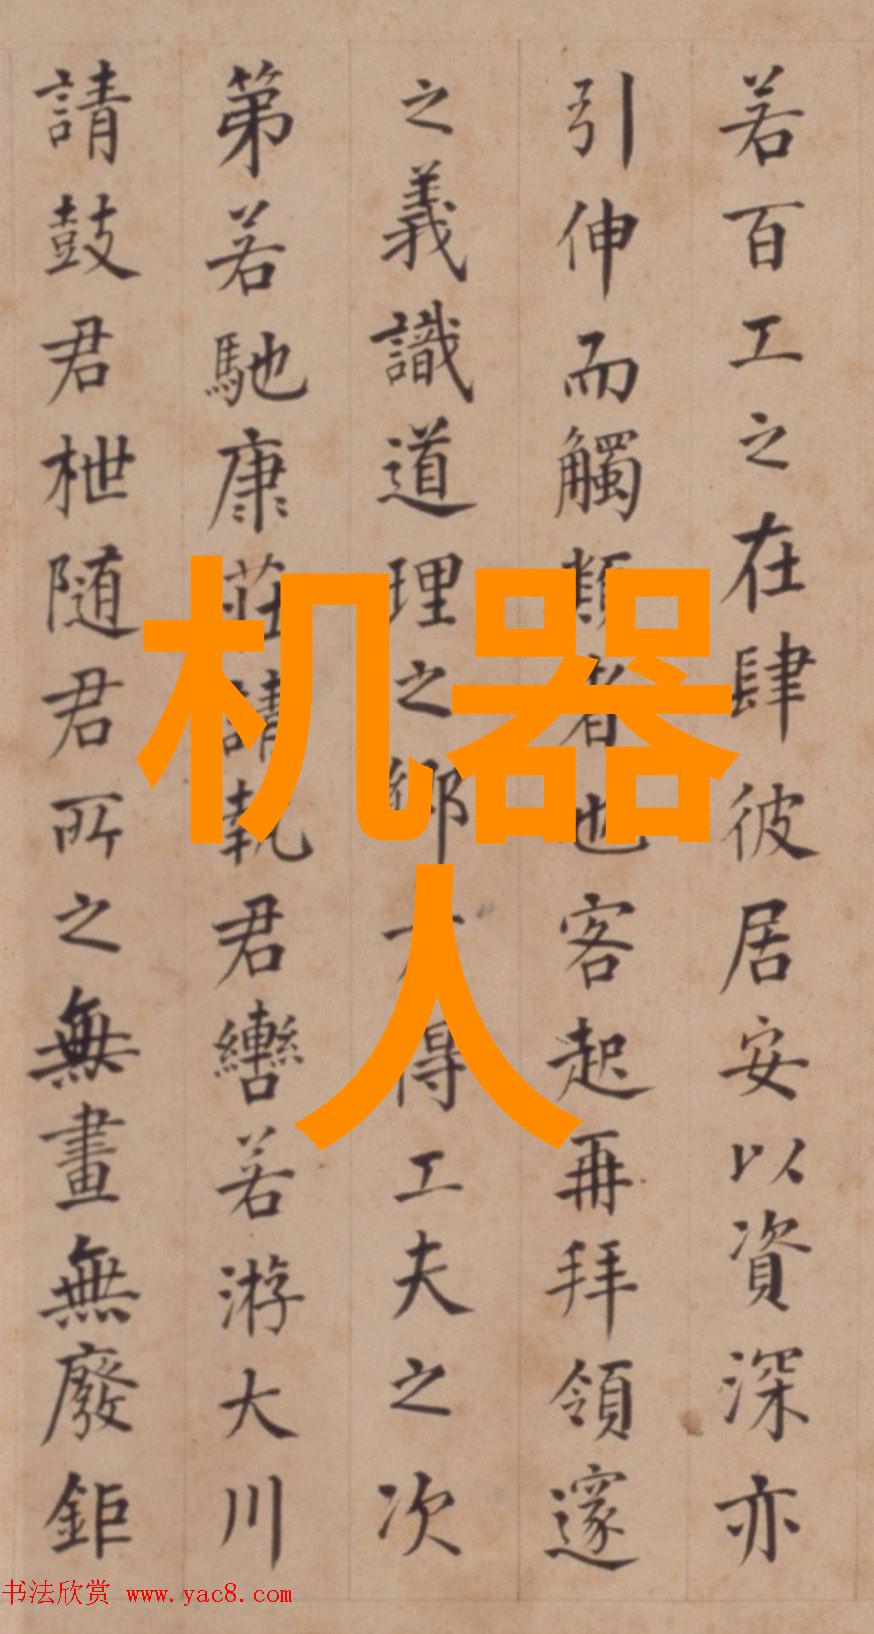 若百工之在肆彼居安以資深亦
引伸而觸類者也客起再拜領邃
之義識道理之鄉方得工夫之次
第若馳康荘請執君轡若游大川
請鼓君枻随君所之無畫無廢鉅
机器
人
书法欣赏 www.yac8.com